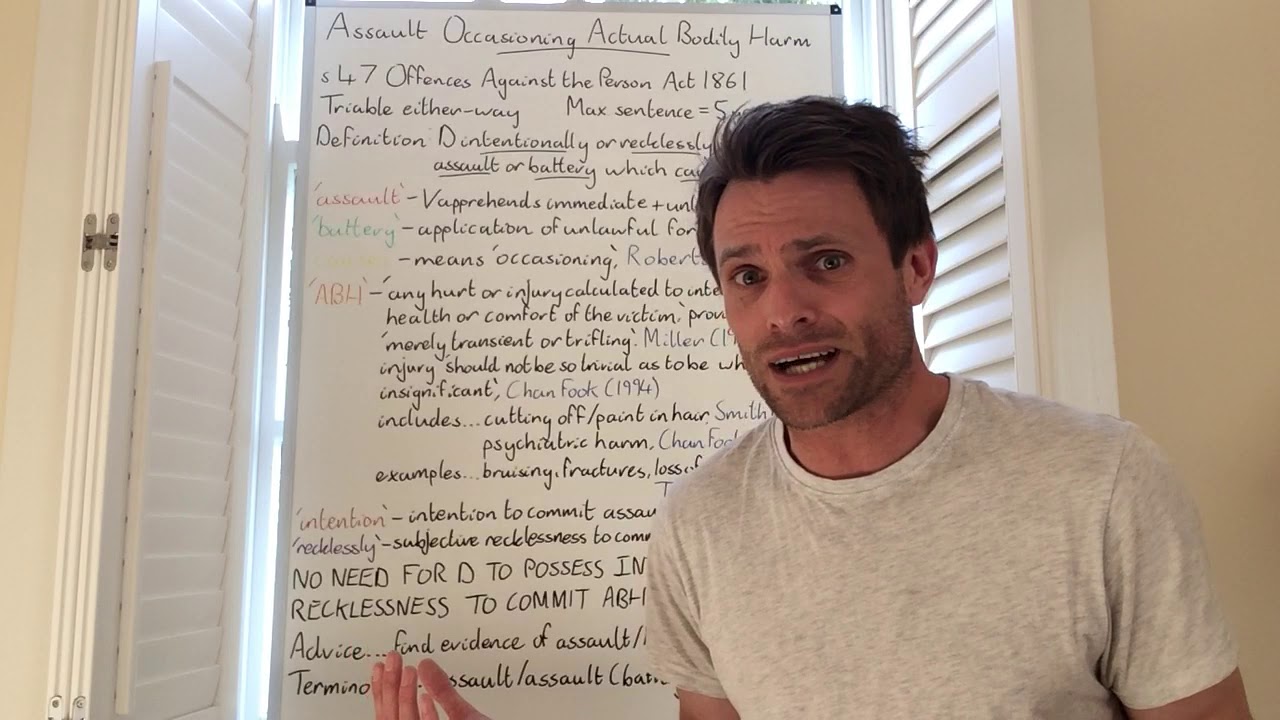 Assault Occasioning Actual Bodily Harm
s47 Offences Against the Person Act 1861
Triable either-way Max sentence = 5
Definition D intentionally or recklessly
assault or battery which
'assault' - V apprehends immediate + unl
'battery' - application of unlawful for
- means 'occasioning', Roberts
'ABH' - 'any hurt or injury calculated to inte
health or comfort of the victim', prov
'merely transient or trifling'. Miller (19
injury 'should not be so trivial as to be wh
insignificant', Chan Fook (1994)
includes... cutting off/paint in hair, Smith
psychiatric harm, Chan Foo
examples... bruising, fractures, loss of
'intention' - intention to commit assau
'recklessly' - subjective recklessness to comm
NO NEED FOR D TO POSSESS IN
RECKLESSNESS TO COMMIT ABH
Advice... find evidence of assault/
Termino ssault/assault (bat